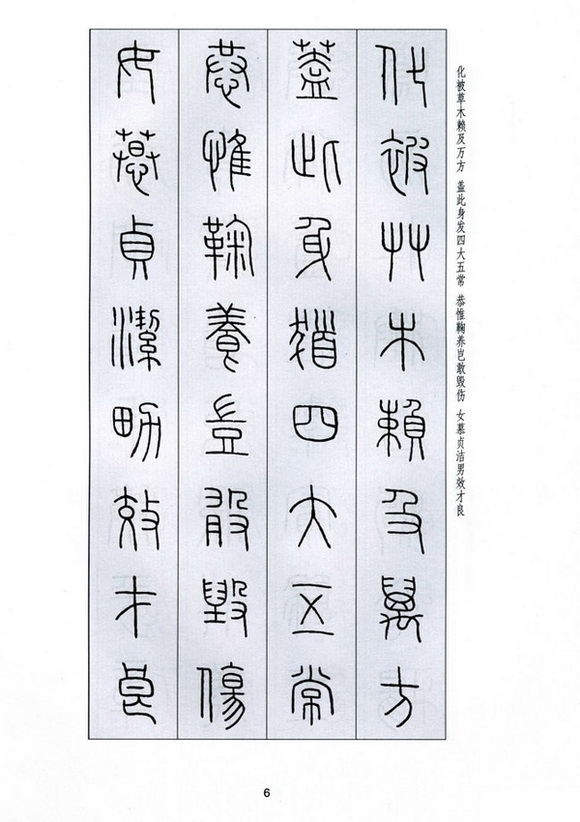 化被草木赖及万方 盖此身发四大五常 恭惟鞠养岂敢毁伤 女慕贞洁男效才良
化被艸木賴及萬方
蓋此身髮四大五常
恭惟鞠養豈敢毀傷
女慕貞潔男效才良
6